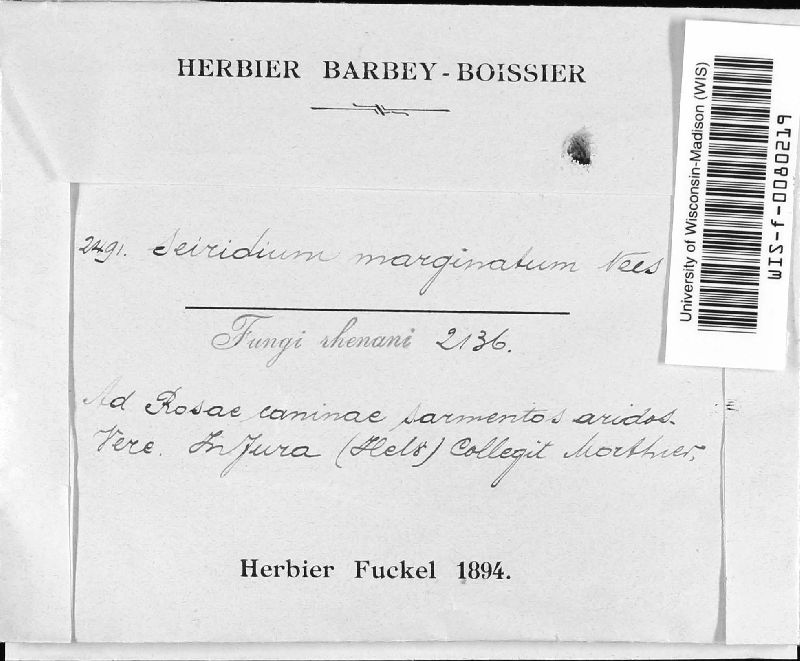 HERBIER BARBEY-BOISSIER
2491. Seiridium marginatum Nees
Fungi rhenani 2136.
Ad Rosae caninae sarmentos aridos.
Vere. In Jura (Helv) Collegit Morthier,
Herbier Fuckel 1894.
University of Wisconsin-Madison (WIS)
WIS-f-0080219